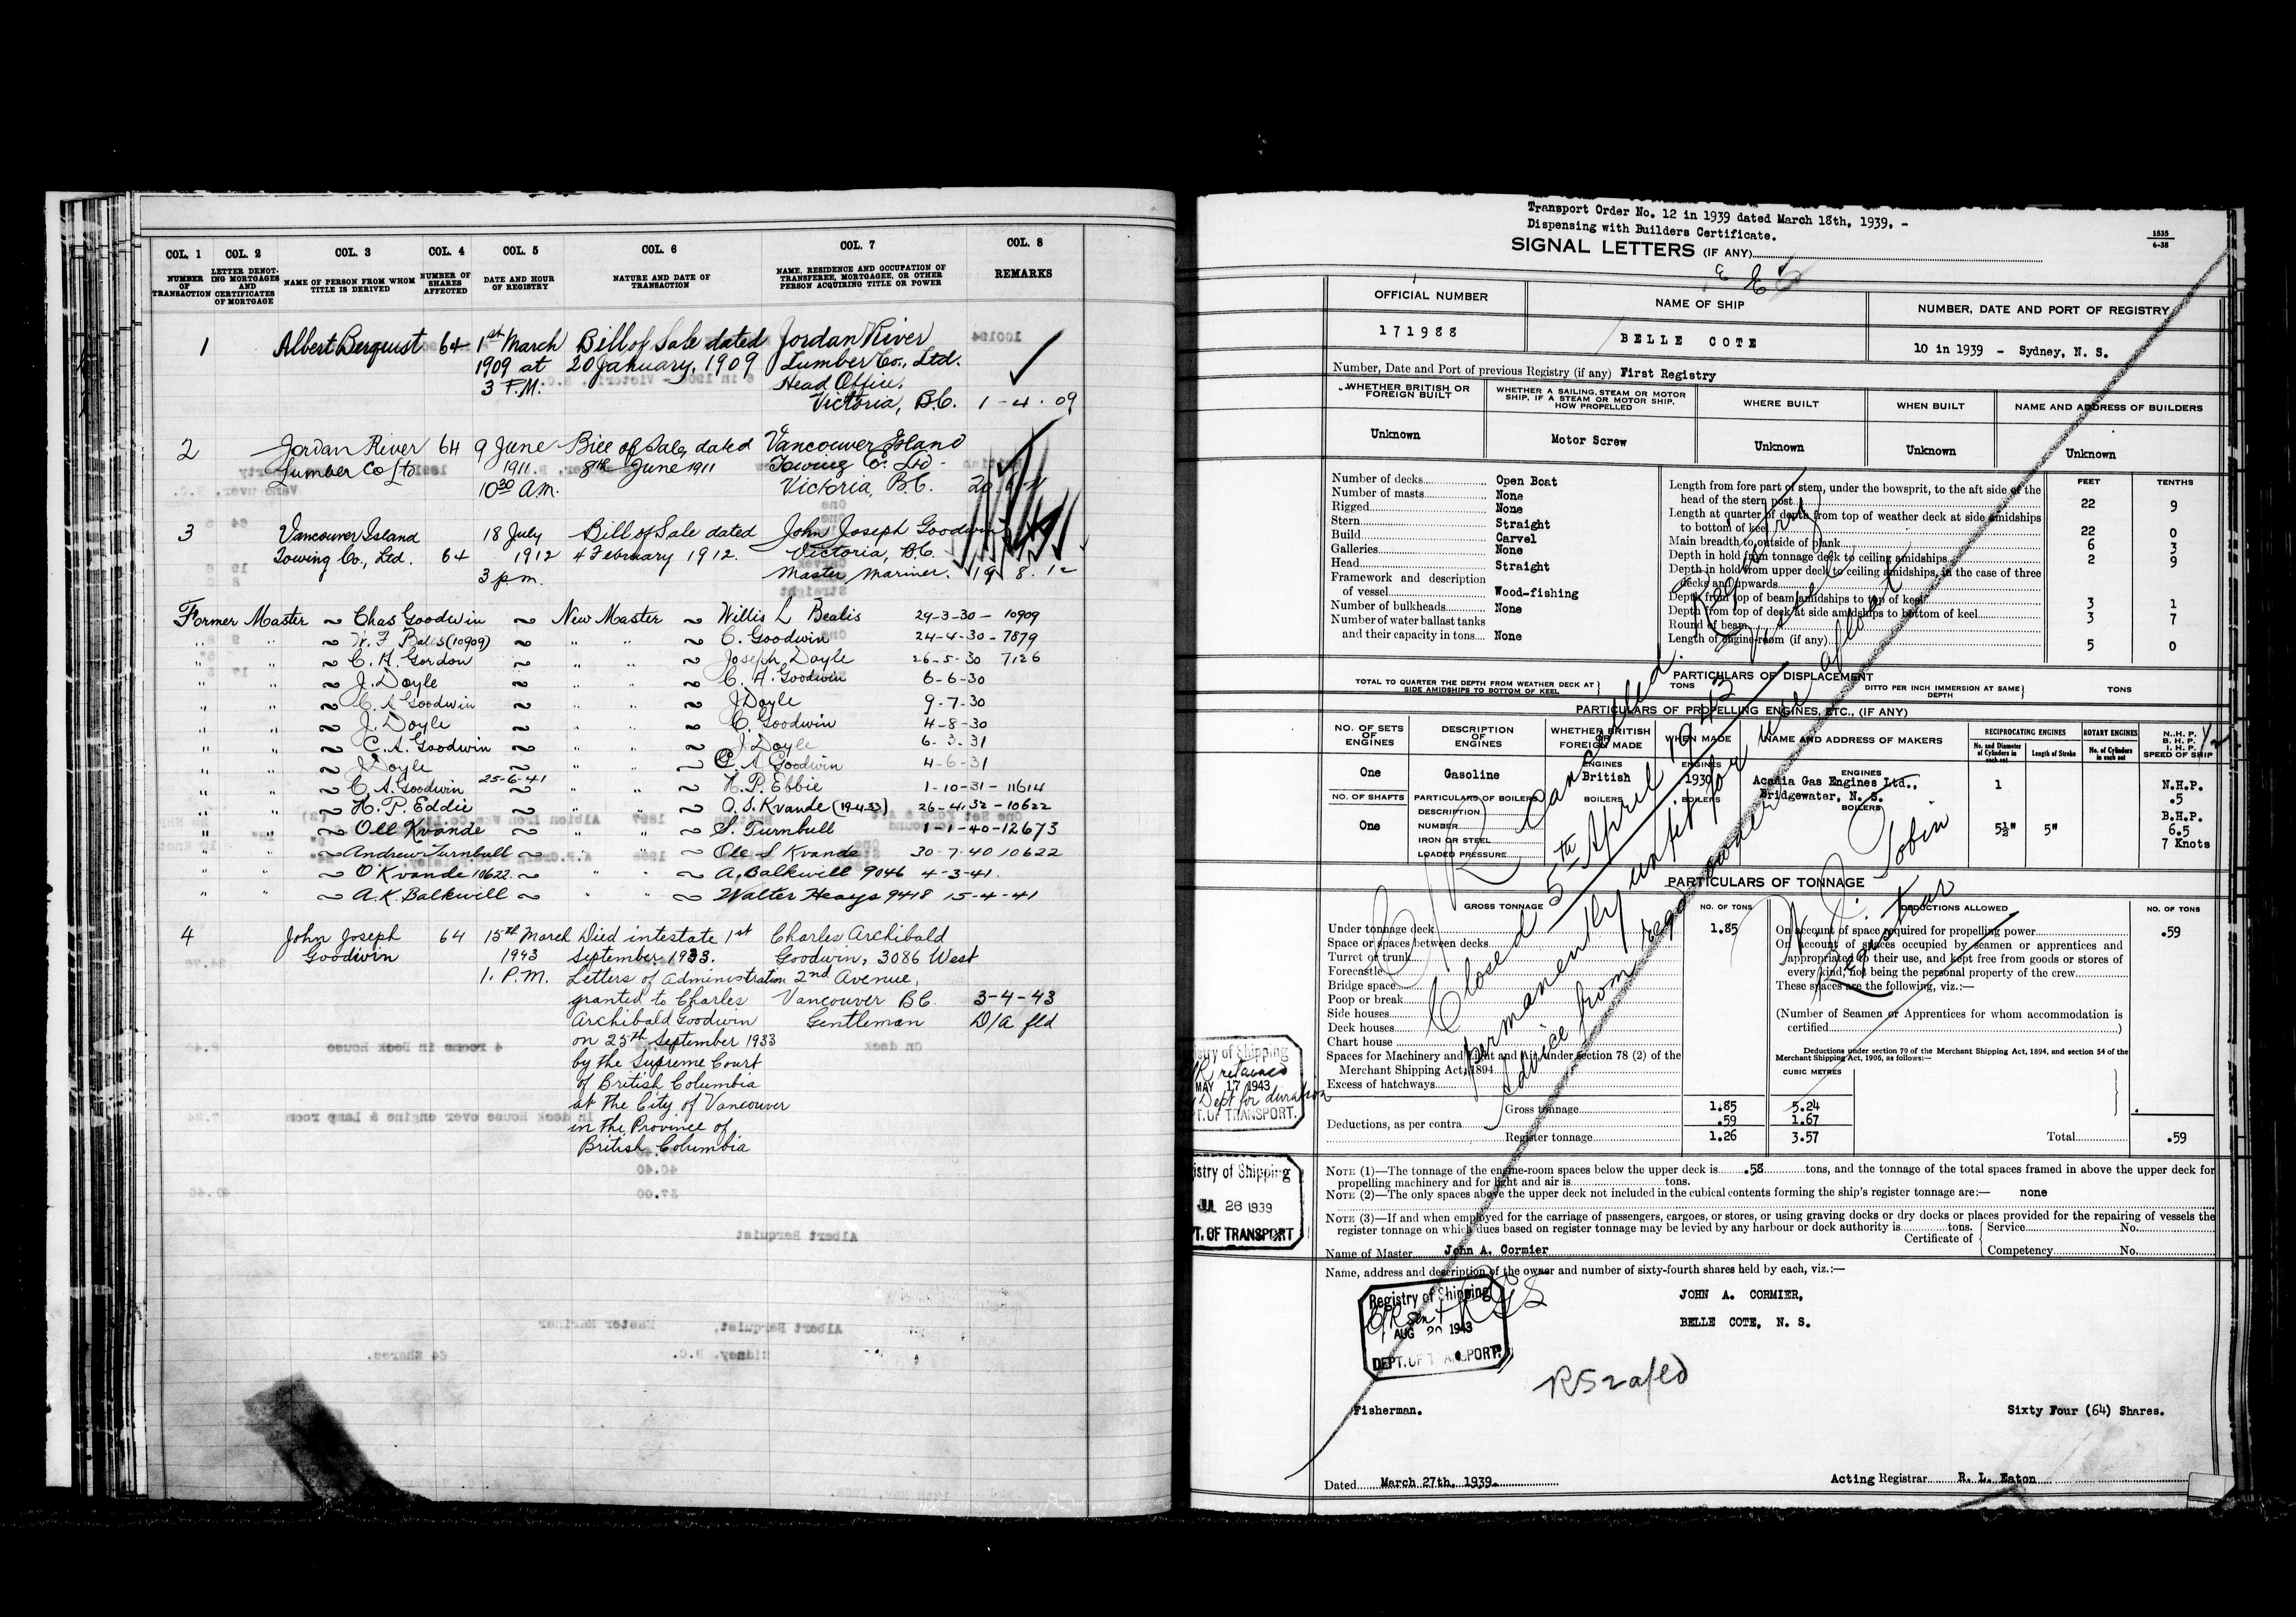 COL. 1 COL. 2 COL. 3 COL. 4 COL. 5 COL. 6 COL. 7 COL. 8
NUMBER OF TRANSACTION
LETTER DENOTING MORTGAGES AND CERTIFICATES OF MORTGAGE
NAME OF PERSON FROM WHOM TITLE IS DERIVED
NUMBER OF SHARES AFFECTED
DATE AND HOUR OF REGISTRY
NATURE AND DATE OF TRANSACTION
NAME, RESIDENCE AND OCCUPATION OF TRANSFEREE, MORTGAGEE, OR OTHER PERSON ACQUIRING TITLE OR POWER
REMARKS
1 Albert Berquist 64 1st March Bill of Sale dated Jordan River
1909 at 20 January, 1909 Lumber Co., Ltd.
3 P.M. Head Office,
Victoria, B.C. 1-4-09
2 Jordan River 64 9 June Bill of Sale, dated Vancouver Island
Lumber Co Ltd 1911. 8th June 1911 Towing Co. Ltd -
10 30 A.M. Victoria, B.C.
3 Vancouver Island 18 July Bill of Sale dated John Joseph Goodwin
Towing Co., Ltd. 64 1912 4 February 1912. Victoria, B.C.
3 p.m. Master Mariner. 19.8.12
Former Master ~ Chas Goodwin ~ New Master ~ Willis L Bealis 29-3-30 - 10909
" " ~ W. F Bales (10909) ~ " " ~ C. Goodwin 24-4-30 - 7879
" " ~ C. A. Gordon ~ " " ~ Joseph Doyle 26-5-30 7126
" " ~ J. Doyle ~ " " ~ C. A. Goodwin 6-6-30
" " ~ C. A Goodwin ~ " " ~ J Doyle 9-7-30
" " ~ J. Doyle ~ " " ~ C. Goodwin 4-8-30
" " ~ C. A. Goodwin ~ " " ~ J Doyle 6-3-31
" " ~ J Doyle ~ " " ~ C. A Goodwin 4-6-31
" " ~ C. A. Goodwin 25-6-41 ~ " " ~ H. P. Ebbie 1-10-31 - 11614
" " ~ H. P. Eddie ~ " " ~ O. S. Kvande (19-4-33) 26-4-32 - 10622
" " ~ Oll Kvande ~ " " ~ S. Turnbull 1-1-40-12673
" " ~ Andrew Turnbull ~ " " ~ Ole S Kvande 30-7-40 10622
" " ~ O Kvande 10622. ~ " " ~ A. Balkwill 9046 4-3-41.
" " ~ A. K. Balkwill ~ " " ~ Walter Heays 9418 15-4-41
4 John Joseph 64 15th March Died intestate 1st Charles Archibald
Goodwin 1943 September 1933. Goodwin, 3086 West
1. P.M. Letters of Administration 2nd Avenue,
granted to Charles Vancouver B.C. 3-4-43
Archibald Goodwin Gentleman D/a fld
on 25th September 1933
by the Supreme Court
of British Columbia
at the City of Vancouver
in the Province of
British Columbia
Transport Order No. 12 in 1939 dated March 18th, 1939. -
Dispensing with Builders Certificate.
SIGNAL LETTERS (IF ANY)
1535
6-38
OFFICIAL NUMBER NAME OF SHIP NUMBER, DATE AND PORT OF REGISTRY
171988 BELLE COTE 10 in 1939 - Sydney, N. S.
Number, Date and Port of previous Registry (if any) First Registry
WHETHER BRITISH OR FOREIGN BUILT
WHETHER A SAILING, STEAM OR MOTOR SHIP, IF A STEAM OR MOTOR SHIP, HOW PROPELLED
WHERE BUILT
WHEN BUILT
NAME AND ADDRESS OF BUILDERS
Unknown Motor Screw Unknown Unknown Unknown
Number of decks Open Boat
Number of masts None
Rigged None
Stern Straight
Build Carvel
Galleries None
Head Straight
Framework and description
of vessel Wood-fishing
Number of bulkheads None
Number of water ballast tanks
and their capacity in tons None
FEET TENTHS
Length from fore part of stem, under the bowsprit, to the aft side of the
head of the stern post 22 9
Length at quarter of depth from top of weather deck at side amidships
to bottom of keel 22 0
Main breadth to outside of plank 6 3
Depth in hold from tonnage deck to ceiling amidships 2 9
Depth in hold from upper deck to ceiling amidships, in the case of three
decks and upwards
Depth from top of beam amidships to top of keel 3 1
Depth from top of deck at side amidships to bottom of keel 3 7
Round of beam
Length of engine-room (if any) 5 0
PARTICULARS OF DISPLACEMENT
TOTAL TO QUARTER THE DEPTH FROM WEATHER DECK AT SIDE AMIDSHIPS TO BOTTOM OF KEEL
TONS
DITTO PER INCH IMMERSION AT SAME DEPTH
TONS
PARTICULARS OF PROPELLING ENGINES, ETC., (IF ANY)
NO. OF SETS OF ENGINES
DESCRIPTION OF ENGINES
WHETHER BRITISH OR FOREIGN MADE
WHEN MADE
NAME AND ADDRESS OF MAKERS
RECIPROCATING ENGINES
No. and Diameter of Cylinders in each set
Length of Stroke
ROTARY ENGINES
No. of Cylinders in each set
N.H.P.
B.H.P.
I.H.P.
SPEED OF SHIP
ENGINES ENGINES ENGINES
One Gasoline British 1930 Acadia Gas Engines Ltd., 1 N.H.P.
Bridgewater, N. S. .5
NO. OF SHAFTS PARTICULARS OF BOILERS BOILERS BOILERS BOILERS
DESCRIPTION B.H.P.
One NUMBER 5½" 5" 6.5
IRON OR STEEL 7 Knots
LOADED PRESSURE
PARTICULARS OF TONNAGE
GROSS TONNAGE NO. OF TONS DEDUCTIONS ALLOWED NO. OF TONS
Under tonnage deck 1.85
Space or spaces between decks
Turret or trunk
Forecastle
Bridge space
Poop or break
Side houses
Deck houses
Chart house
Spaces for Machinery and Light and Air under section 78 (2) of the
Merchant Shipping Act, 1894
Excess of hatchways
Gross tonnage 1.85 5.24
Deductions, as per contra .59 1.67
Register tonnage 1.26 3.57
On account of space required for propelling power .59
On account of spaces occupied by seamen or apprentices and
appropriated to their use, and kept free from goods or stores of
every kind, not being the personal property of the crew
These spaces are the following, viz.:—
(Number of Seamen or Apprentices for whom accommodation is
certified )
Deductions under section 79 of the Merchant Shipping Act, 1894, and section 54 of the
Merchant Shipping Act, 1906, as follows:—
CUBIC METRES
Total .59
C/R Cancelled.
Registry
Closed 5th April 1943 Vessel
permanently unfit for use afloat
advice from regd owner
R. J. Tobin
Registrar
NOTE (1)—The tonnage of the engine-room spaces below the upper deck is .58 tons, and the tonnage of the total spaces framed in above the upper deck for
propelling machinery and for light and air is tons.
NOTE (2)—The only spaces above the upper deck not included in the cubical contents forming the ship's register tonnage are:— none
NOTE (3)—If and when employed for the carriage of passengers, cargoes, or stores, or using graving docks or dry docks or places provided for the repairing of vessels the
register tonnage on which dues based on register tonnage may be levied by any harbour or dock authority is tons.
Certificate of Service No.
Competency No.
Name of Master John A. Cormier
Name, address and description of the owner and number of sixty-fourth shares held by each, viz.:—
JOHN A. CORMIER,
BELLE COTE, N. S.
Fisherman. Sixty Four (64) Shares.
Registry of Shipping
AUG 20 1943
DEPT. OF TRANSPORT
istry of Shipping
C/R retained
MAY 17 1943
Dept for duration
PT. OF TRANSPORT.
istry of Shipping
JUL 26 1939
PT. OF TRANSPORT
Dated March 27th, 1939. Acting Registrar R. L. Eaton